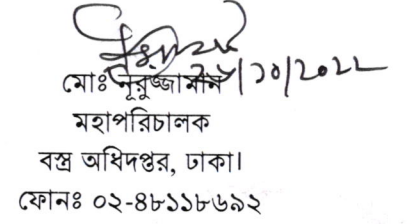 মোঃ নূরুজ্জামান
মহাপরিচালক
বস্ত্র অধিদপ্তর, ঢাকা।
ফোনঃ ০২-৪৮১১৮৬৯২